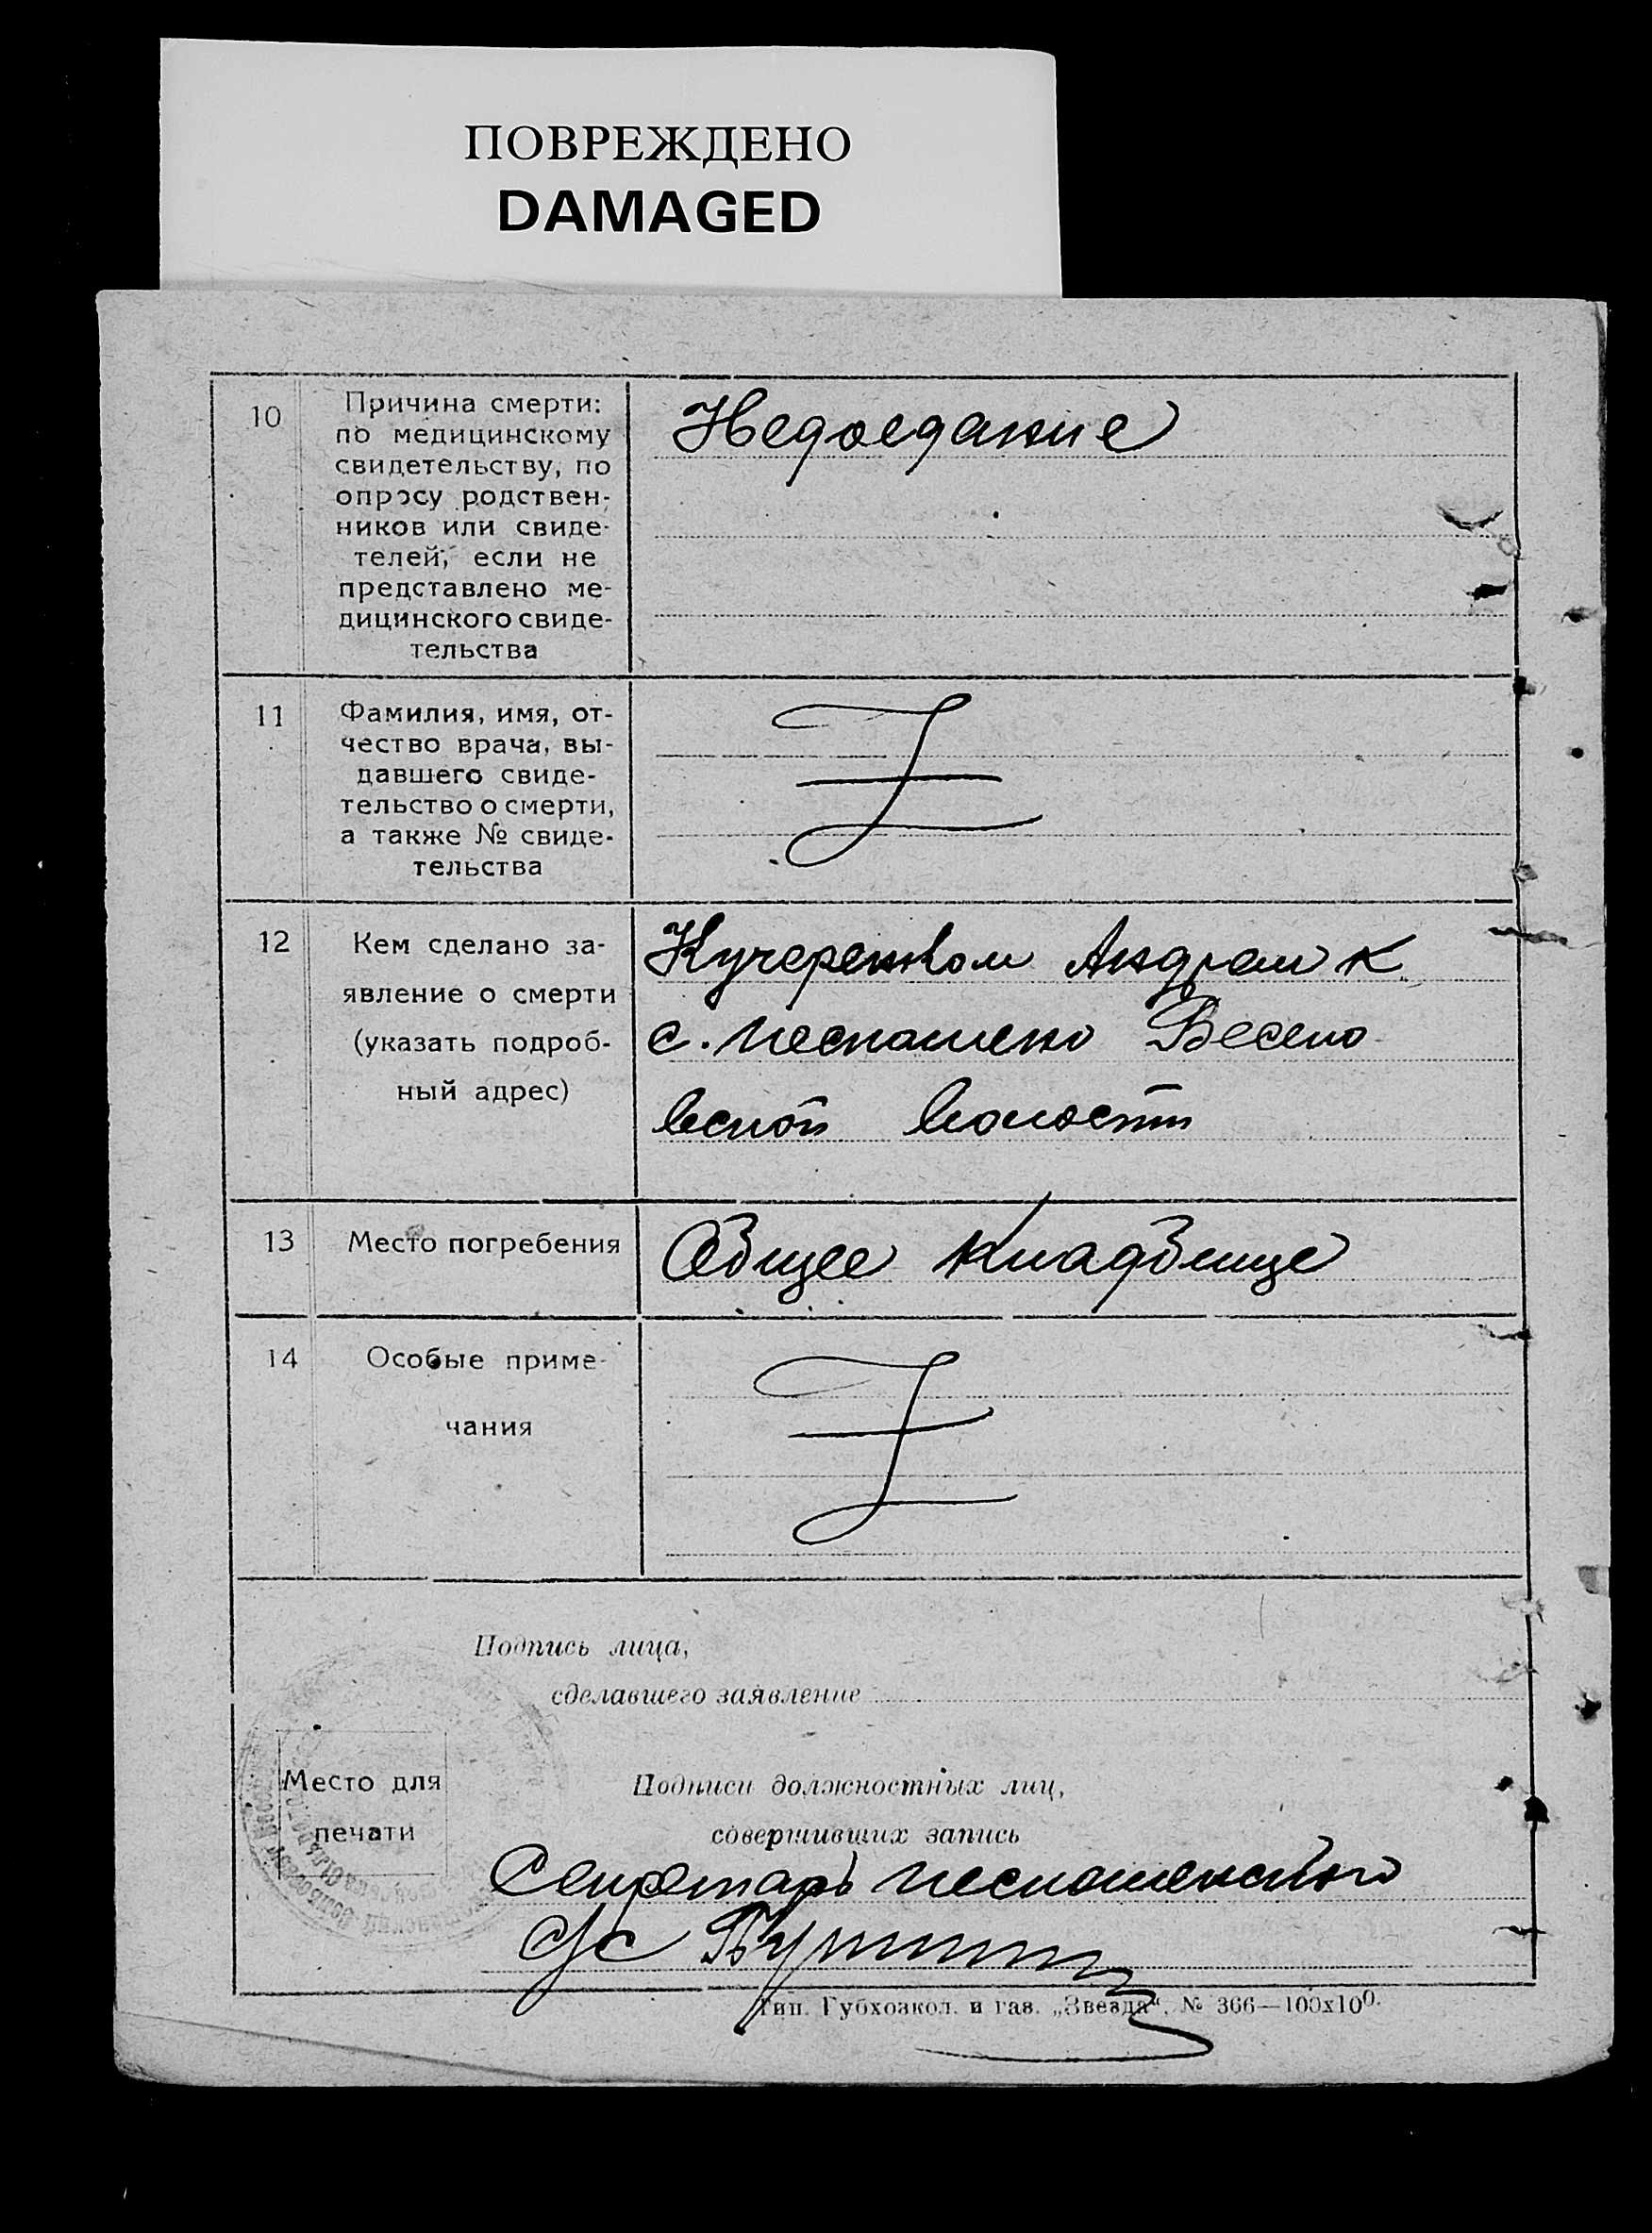 ПОВРЕЖДЕНО
DAMAGED
10
Причина смерти:
по медицинскому
свидетельству, по
опросу родствен-
ников или свиде-
телей, если не
представлено ме-
дицинского свиде-
тельства
Недоедание
11
Фамилия, имя, от-
чество врача, вы-
давшего свиде-
тельство о смерти,
а также № свиде-
тельства
12
Кем сделано за-
явление о смерти
(указать подроб-
ный адрес)
Кучеренком Андреем К
с. Песпошено Весело
веской волости
13
Место погребения
Общее кладбище
14
Особые приме-
чания
Подпись лица,
сделавшего заявление
Место для
печати
Подписи должностных лиц,
совершивших запись
Секретарь
с/с
Тип. Губхозкол. и газ. „Звезда“. № 366—100х100.